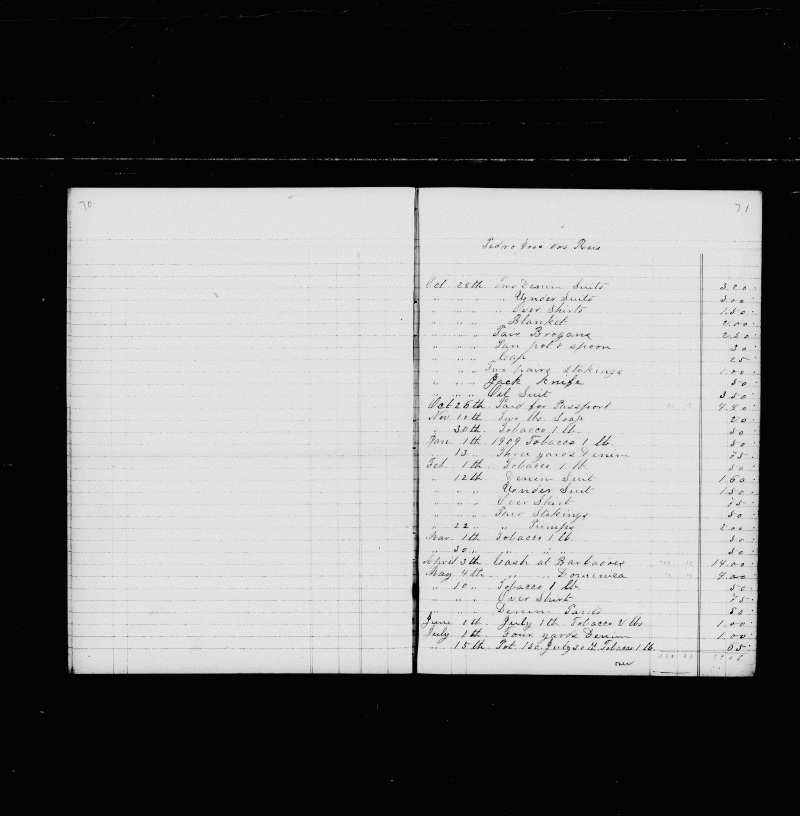 70
71
Pedro Jose dos Reis
Oct. 28th Two Denim Suits 3.20
" " " " Under Suits 3.00
" " " " Over Shirts 1.50
" " " Blanket 2.00
" " " Pair Brogans 2.50
" " " Pan pot & spoon 30
" " " Cap 25
" " " Two pairs Stokings 1.00
" " " Jack Knife 50
" " " Oil Suit 3.50
Oct 26th Paid for Passport 4.80
Nov. 12th Two lbs. Soap 20
" 30th Tobacco 1 lb. 50
Jan. 1th 1909 Tobacco 1 lb 50
" 13 " Three yards Denim 75
Feb. 1th Tobacco 1 lb. 50
" 12th Denim Suit 1.60
" " " Under Suit 1.50
" " " Over Shirt 75
" " " Pair Stokings 50
" 22 " " Pumps 2.00
Mar. 1th Tobacco 1 lb. 50
" 30 " " " " 50
April 3th Cash at Barbadoes 14.00
May 4th " " Dominica 4.00
" 10 " Tobacco 1 lb 50
" " " Over Shirt 75
" " " Denim Pants 80
June 1th July 1th Tobacco 2 lbs 1.00
July 1th Four yards Denim 1.00
" 15th Pot. 15c. July 30th Tobacco 1 lb. 65
over